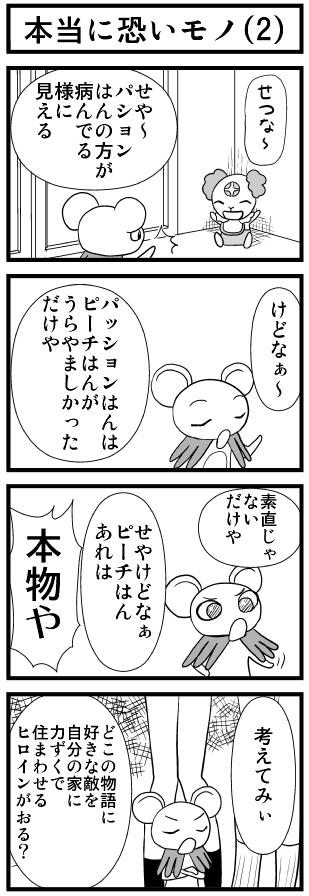 本当に恐いモノ(2)
せつな～
せや～
パション
はんの方が
病んでる
様に
見える
けどなぁ～
パッションはんは
ピーチはんが
うらやましかった
だけや
素直じゃ
ない
だけや
せやけどなぁ
ピーチはん
あれは
本物や
考えてみぃ
どこの物語に
好きな敵を
自分の家に
力ずくで
住まわせる
ヒロインがおる?